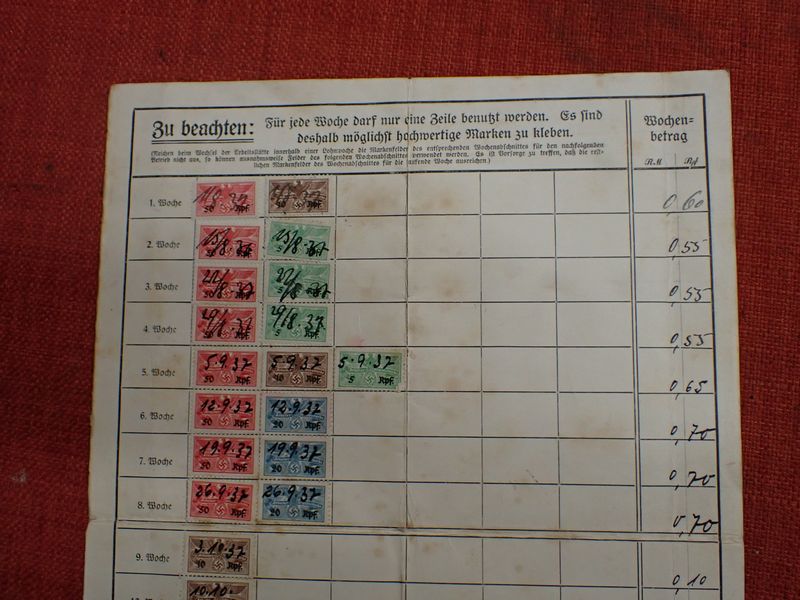 Zu beachten: Für jede Woche darf nur eine Zeile benutzt werden. Es sind
deshalb möglichst hochwertige Marken zu kleben.
(Reichen beim Wechsel der Arbeitsstätte innerhalb einer Lohnwoche die Markenfelder des entsprechenden Wochenabschnittes für den nachfolgenden
Betrieb nicht aus, so können ausnahmsweise Felder des folgenden Wochenabschnittes verwendet werden. Es ist Vorsorge zu treffen, daß die rest-
lichen Markenfelder des Wochenabschnittes für die laufende Woche ausreichen.)
Wochen-
betrag
RM Rpf
1. Woche 50 Rpf. 10 Rpf. 0,60
2. Woche 15/8.37 50 Rpf. 15/8.37 5 Rpf. 0,55
3. Woche 22/8.37 50 Rpf. 22/8.37 5 Rpf. 0,55
4. Woche 29/8.37 50 Rpf. 29/8.37 5 Rpf. 0,55
5. Woche 5.9.37 50 Rpf. 5.9.37 10 Rpf. 5.9.37 5 Rpf. 0,65
6. Woche 12.9.37 50 Rpf. 12.9.37 20 Rpf. 0,70
7. Woche 19.9.37 50 Rpf. 19.9.37 20 Rpf. 0,70
8. Woche 26.9.37 50 Rpf. 26.9.37 20 Rpf. 0,70
9. Woche 3.10.37 10 Rpf. 0,10
10.10.